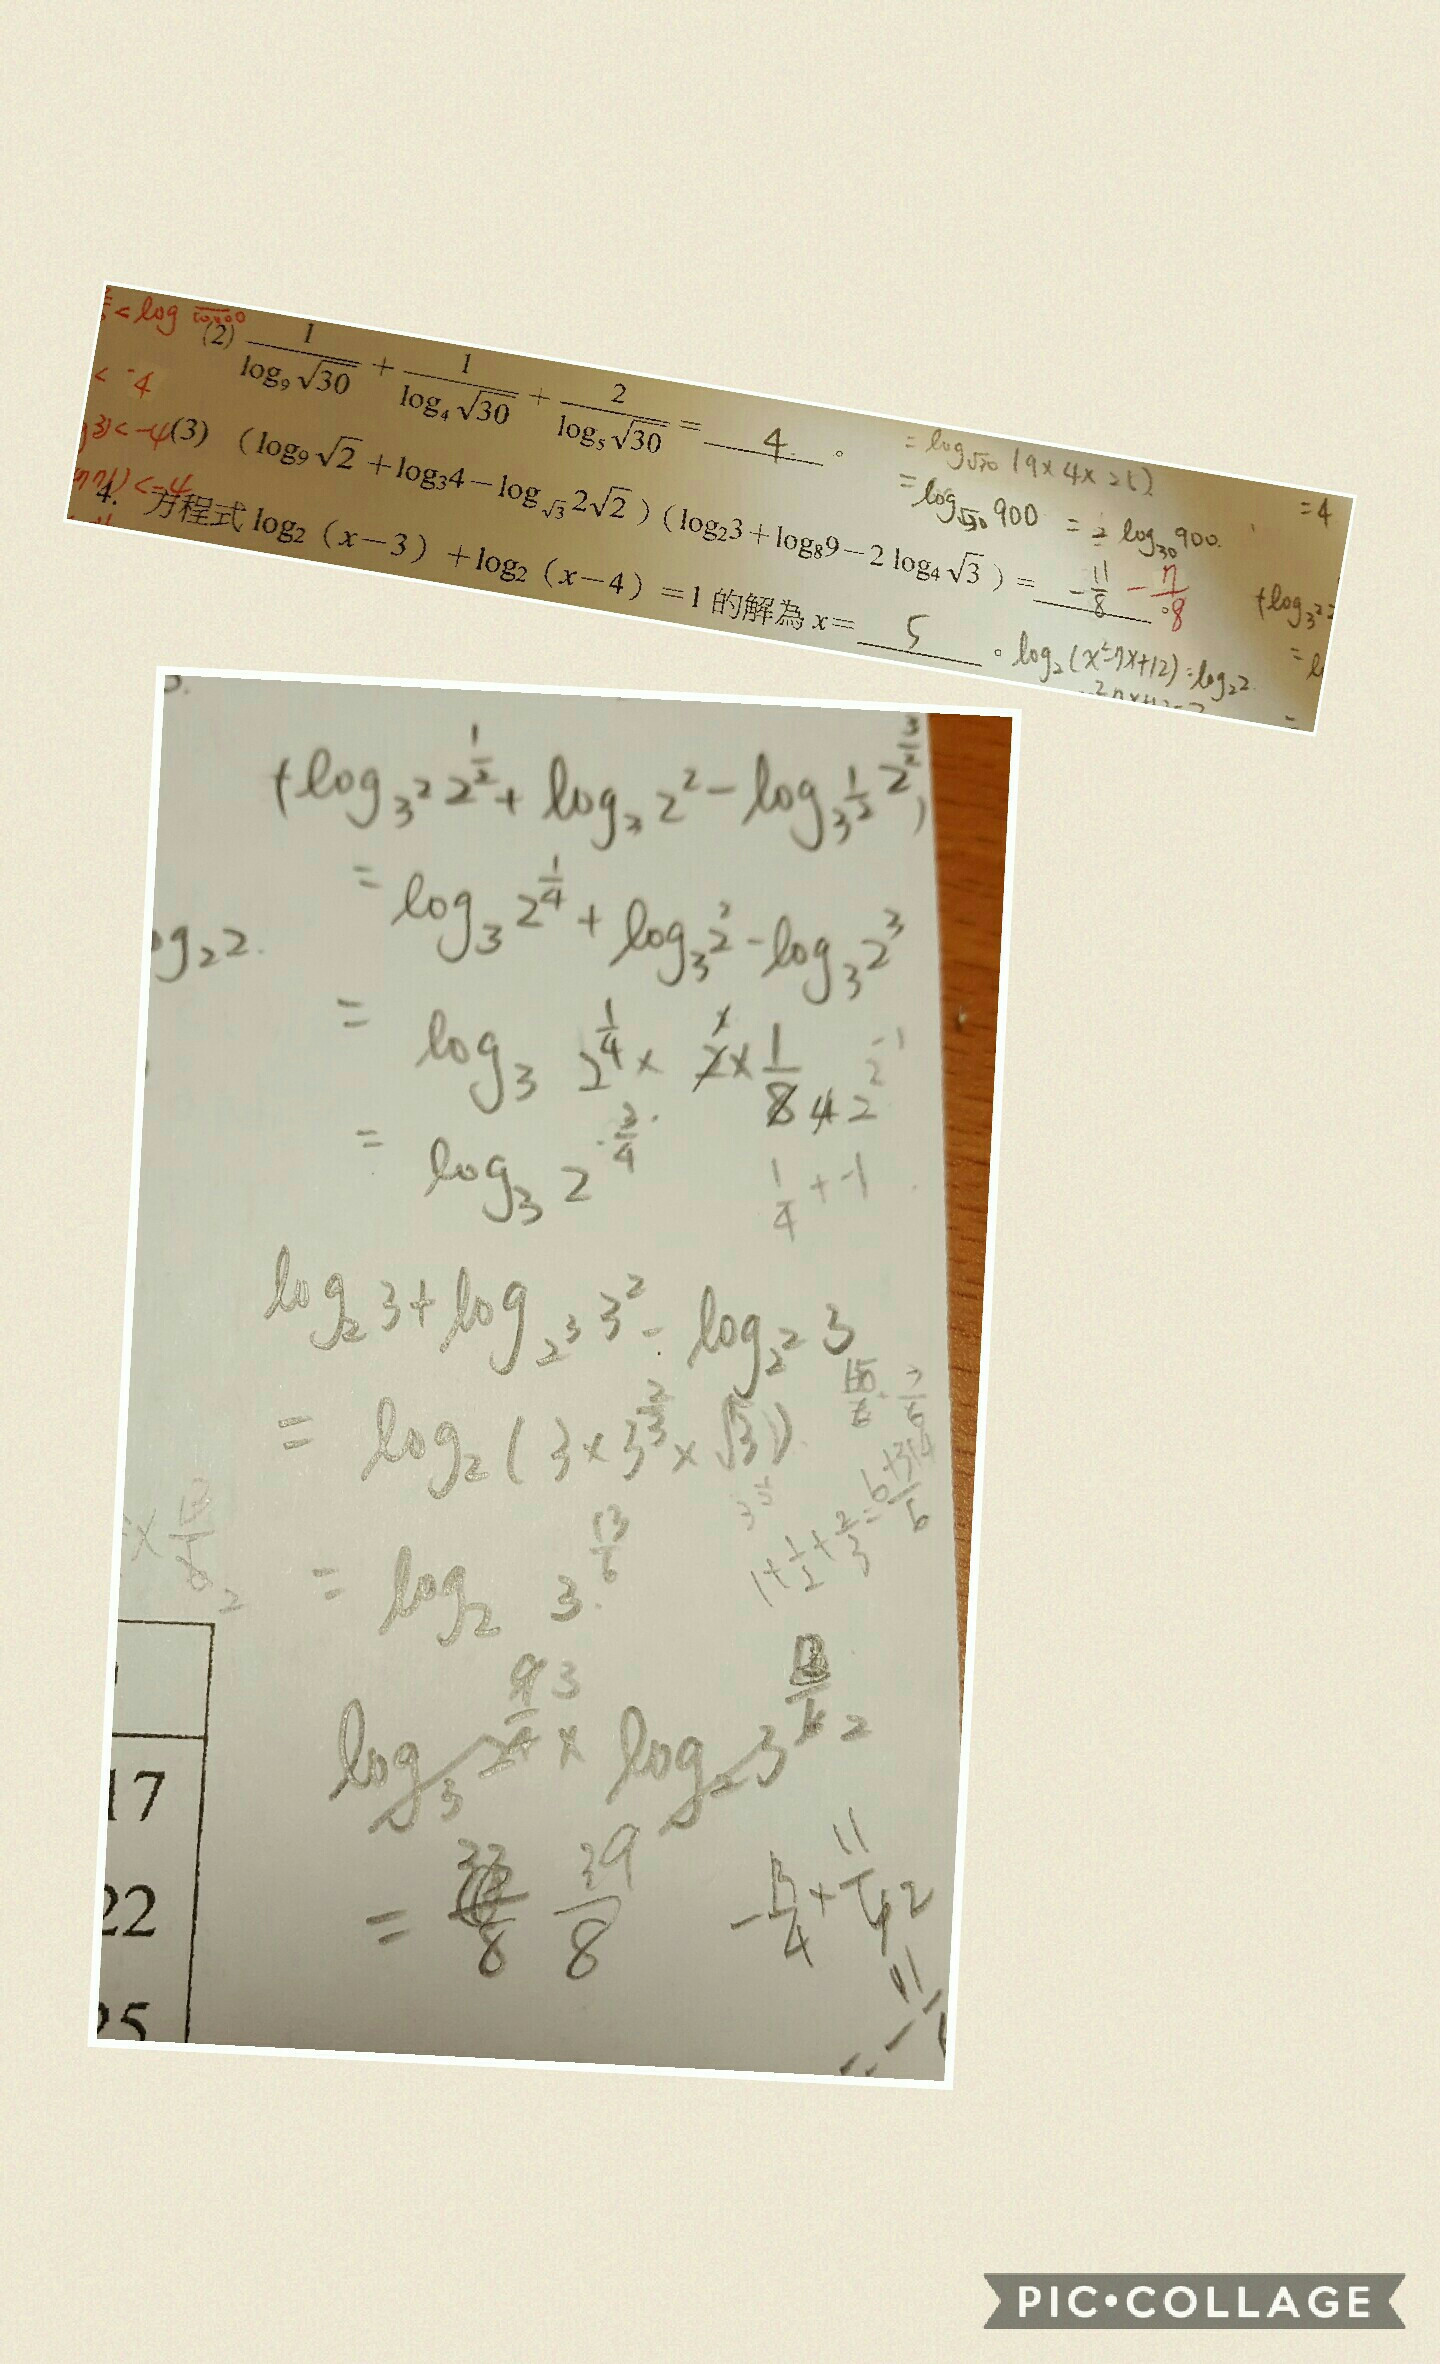 < log
(2) 1/log₉√30 + 1/log₄√30 + 2/log₅√30 = 4 。
= log√30 (9×4×25)
= log√30 900 = 2 log₃₀ 900.
= 4
< -4
3) < -4
(3) (log₉√2 + log₃4 − log√3 2√2) (log₂3 + log₈9 − 2 log₄√3) = -11/8 。
) < -4
4. 方程式 log₂ (x−3) + log₂ (x−4) = 1 的解為 x = 5 。
log₂(x²-7x+12) = log₂2
+log₃²
(log₃² 2^½ + log₃ 2² - log₃^½ 2^3/2)
= log₃ 2^¼ + log₃ 2² - log₃ 2³
og₂2.
= log₃ 2^¼ × 2 × 1/8 4 2² 2⁻¹
= log₃ 2^
1/4 + -1
log₂ 3 + log₂³ 3² - log₂² 3
= log₂ (3 × 3^⅔ × √3)
1 + 1/2 + 2/3 =
× 13/6 2
= log₂ 3^13/6
log₃ 2^9/4 3 × log₂ 3^13/6 2
= 39/8
17
22
25
PIC•COLLAGE